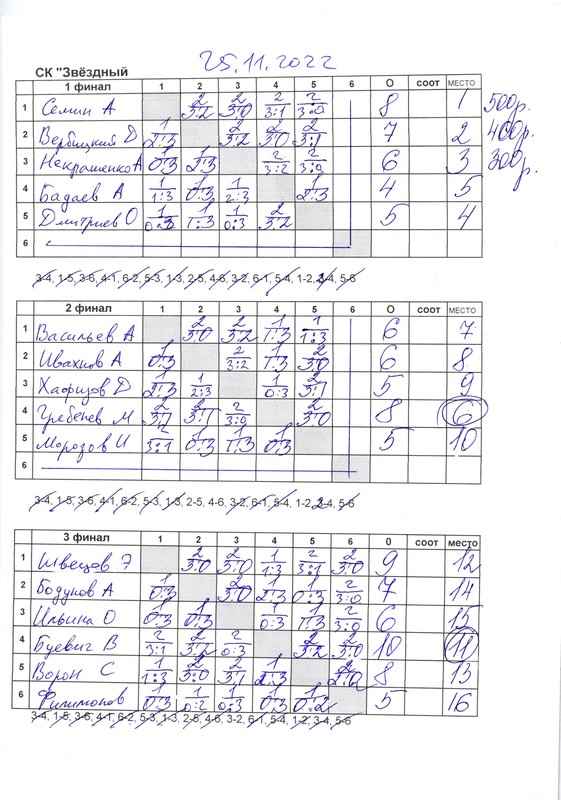 25.11.2022
СК "Звёздный
1 финал 1 2 3 4 5 6 О соот МЕСТО
1 Семин А 2 3:2 2 3:0 2 3:1 2 3:0 8 1 500р.
2 Вербицкий D 1 2:3 2 3:2 2 3:0 2 3:1 7 2 400р.
3 Некрашенко А 1 0:3 1 2:3 2 3:2 2 3:0 6 3 300р.
4 Бадаев А 1 1:3 1 0:3 1 2:3 1 2:3 4 5
5 Дмитриев О 1 0:3 1 1:3 1 0:3 2 3:2 5 4
6
3-4, 1-5, 3-6, 4-1, 6-2, 5-3, 1-3, 2-5, 4-6, 3-2, 6-1, 5-4, 1-2, 3-4, 5-6
2 финал 1 2 3 4 5 6 О соот МЕСТО
1 Васильев А 2 3:0 2 3:2 1 1:3 1 1:3 6 7
2 Ивахнов А 1 0:3 2 3:2 1 1:3 2 3:0 6 8
3 Хафизов D 1 2:3 1 2:3 1 0:3 2 3:1 5 9
4 Гребенев М 2 3:1 2 3:1 2 3:0 2 3:0 8 6
5 Морозов И 2 3:1 1 0:3 1 1:3 1 0:3 5 10
6
3-4, 1-5, 3-6, 4-1, 6-2, 5-3, 1-3, 2-5, 4-6, 3-2, 6-1, 5-4, 1-2, 2-4, 5-6
3 финал 1 2 3 4 5 6 0 соот место
1 Швецов Э 2 3:0 2 3:0 1 1:3 2 3:1 2 3:0 9 12
2 Бодунов А 1 0:3 2 3:0 1 2:3 1 0:3 2 3:0 7 14
3 Ильина О 1 0:3 1 0:3 1 0:3 1 1:3 2 3:0 6 15
4 Буевич В 2 3:1 2 3:2 2 0:3 2 3:2 2 3:0 10 11
5 Ворон С 1 1:3 2 3:0 2 3:1 1 2:3 2 2:0 8 13
6 Филимонов 1 0:3 1 0:2 1 0:3 1 0:3 1 0:2 5 16
3-4, 1-5, 3-6, 4-1, 6-2, 5-3, 1-3, 2-5, 4-6, 3-2, 6-1, 5-4, 1-2, 3-4, 5-6